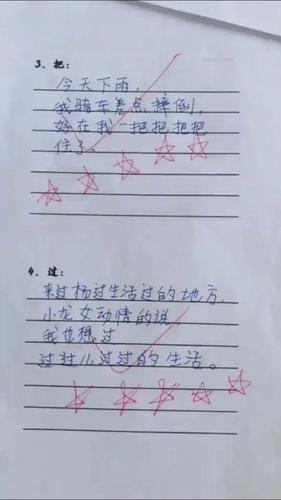 3、把：
今天下雨，
我骑车差点摔倒，
好在我一把把把把
住了。
4、过：
来过杨过生活过的地方，
小龙女动情的说，
我也想过
过过儿过过的生活。